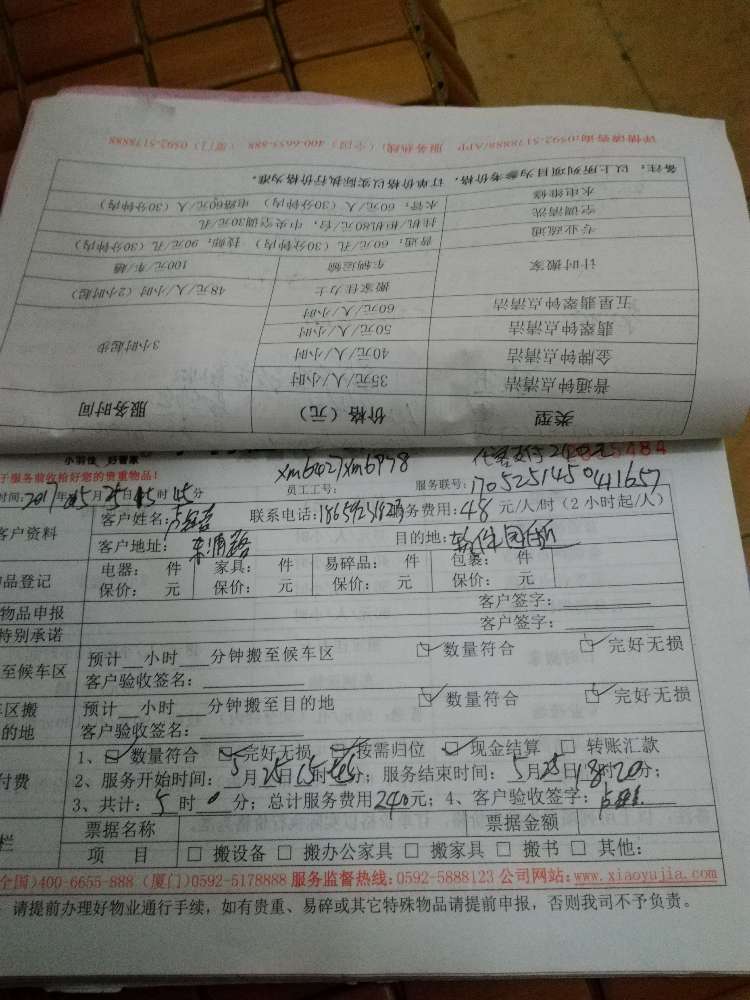 详情请咨询:0592-5178888/APP 服务热线:(全国) 400-6655-888 (厦门) 0592-5178888
备注:以上所列项目为参考价格,订单价格以实际执行价格为准。
水电维修 水管:60元/人(30分钟内) 电路60元/人(30分钟内)
空调清洗 挂机/柜机80元/台,中央空调30元/孔
专业疏通 普通:60元/孔(30分钟内) 技师:90元/孔(30分钟内)
计时搬家 车辆运输 100元/车/趟
搬家佳力士 48元/人/小时(2小时起)
五星翡翠钟点清洁 60元/人/小时
翡翠钟点清洁 50元/人/小时
金牌钟点清洁 40元/人/小时 3小时起步
普通钟点清洁 35元/人/小时
类型 价格(元) 服务时间
小羽佳 好管家
于服务前收拾好您的贵重物品! xm6427xm6978 240元 5484
员工工号: 服务联号:170525145041657
时间:2017年05月25日15时45分
客户资料 客户姓名: 联系电话: 服务费用:48元/人/时(2小时起/人)
客户地址: 东浦路 目的地: 软件园附近
品登记 电器: 件 家具: 件 易碎品: 件 包裹: 件
保价: 元 保价: 元 保价: 元 保价: 元
物品申报 客户签字:
特别承诺 客户签字:
至候车区 预计__小时___分钟搬至候车区 ☑数量符合 ☑完好无损
客户验收签名:
车区搬 预计__小时___分钟搬至目的地 ☑数量符合 ☑完好无损
的地 客户验收签名:
1、☑数量符合 ☑完好无损 ☑按需归位 ☑现金结算 □转账汇款
付费 2、服务开始时间:5月25日15时45分;服务结束时间:5月25日18时20分;
3、共计:5时0分;总计服务费用240元;4、客户验收签字:
栏 票据名称 票据金额
项 目 □搬设备 □搬办公家具 □搬家具 □搬书 □其他:
全国)400-6655-888 (厦门)0592-5178888 服务监督热线:0592-5888123 公司网站:www.xiaoyujia.com
请提前办理好物业通行手续,如有贵重、易碎或其它特殊物品请提前申报,否则我司不予负责。